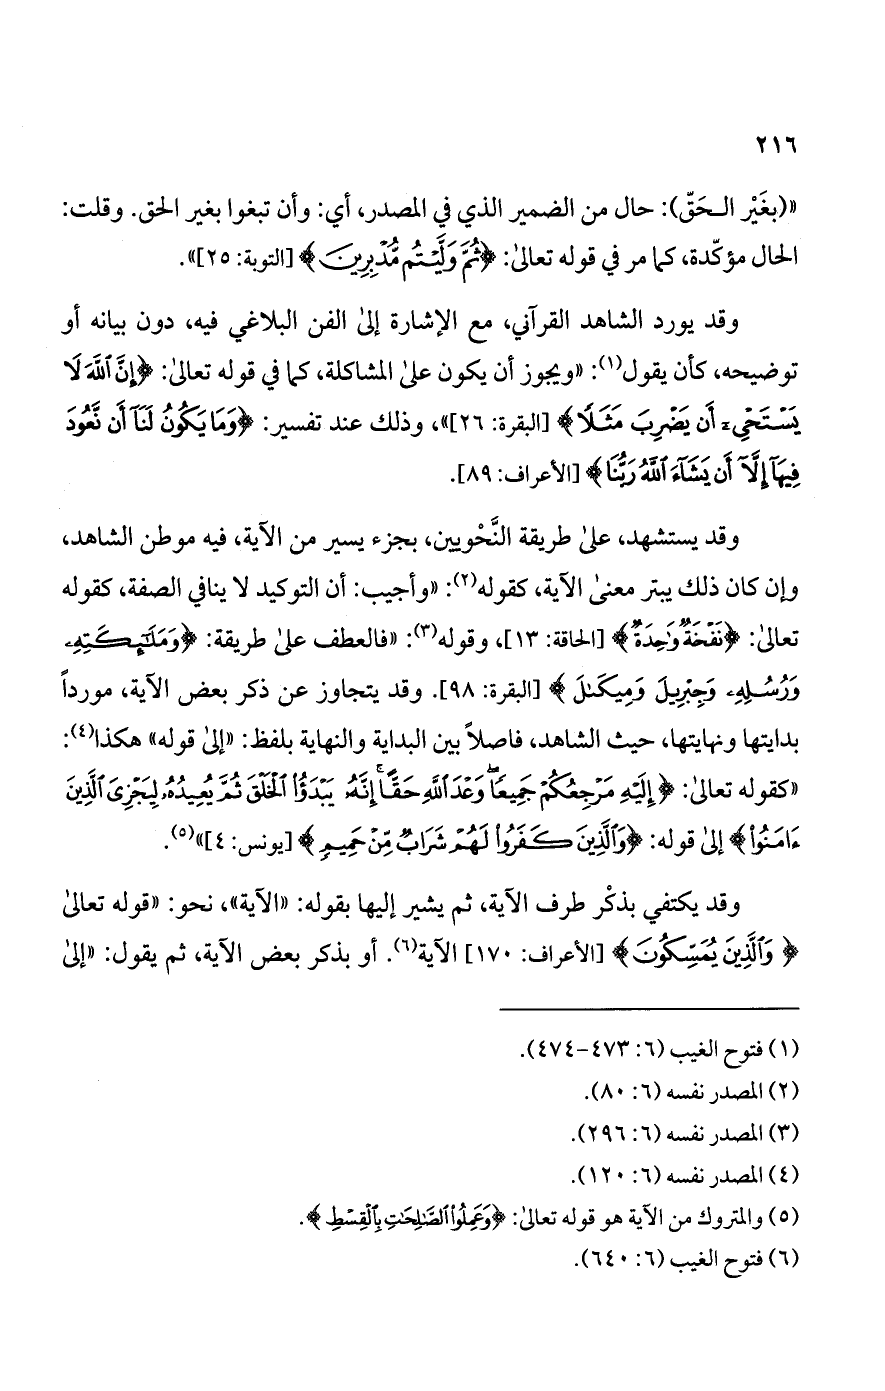 ٢١٦
«(بغَيْر الـحَقّ): حال من الضمير الذي في المصدر، أي: وأن تبغوا بغير الحق. وقلت:
الحال مؤكّدة، كما مر في قوله تعالىٰ: ﴿ثُمَّ وَلَّيْتُم مُّدْبِرِينَ﴾ [التوبة: ٢٥]».
وقد يورد الشاهد القرآني، مع الإشارة إلىٰ الفن البلاغي فيه، دون بيانه أو
توضيحه، كأن يقول(١): «ويجوز أن يكون علىٰ المشاكلة، كما في قوله تعالىٰ: ﴿إِنَّ ٱللَّهَ لَا
يَسْتَحْىِۦٓ أَن يَضْرِبَ مَثَلًا﴾ [البقرة: ٢٦]»، وذلك عند تفسير: ﴿وَمَا يَكُونُ لَنَآ أَن نَّعُودَ
فِيهَآ إِلَّآ أَن يَشَآءَ ٱللَّهُ رَبُّنَا﴾ [الأعراف: ٨٩].
وقد يستشهد، علىٰ طريقة النَّحْويين، بجزء يسير من الآية، فيه موطن الشاهد،
وإن كان ذلك يبتر معنىٰ الآية، كقوله(٢): «وأجيب: أن التوكيد لا ينافي الصفة، كقوله
تعالىٰ: ﴿نَفْخَةٌ وَٰحِدَةٌ﴾ [الحاقة: ١٣]، وقوله(٣): «فالعطف علىٰ طريقة: ﴿وَمَلَٰٓئِكَتِهِۦ
وَرُسُلِهِۦ وَجِبْرِيلَ وَمِيكَىٰلَ﴾ [البقرة: ٩٨]. وقد يتجاوز عن ذكر بعض الآية، مورداً
بدايتها ونهايتها، حيث الشاهد، فاصلاً بين البداية والنهاية بلفظ: «إلىٰ قوله» هكذا(٤):
«كقوله تعالىٰ: ﴿إِلَيْهِ مَرْجِعُكُمْ جَمِيعًا ۖ وَعْدَ ٱللَّهِ حَقًّا ۚ إِنَّهُۥ يَبْدَؤُا۟ ٱلْخَلْقَ ثُمَّ يُعِيدُهُۥ لِيَجْزِىَ ٱلَّذِينَ
ءَامَنُوا۟﴾ إلىٰ قوله: ﴿وَٱلَّذِينَ كَفَرُوا۟ لَهُمْ شَرَابٌ مِّنْ حَمِيمٍ﴾ [يونس: ٤]»(٥).
وقد يكتفي بذكْر طرف الآية، ثم يشير إليها بقوله: «الآية»، نحو: «قوله تعالىٰ
﴿وَٱلَّذِينَ يُمَسِّكُونَ﴾ [الأعراف: ١٧٠] الآية(٦). أو بذكر بعض الآية، ثم يقول: «إلىٰ
(١) فتوح الغيب (٦: ٤٧٣-٤٧٤).
(٢) المصدر نفسه (٦: ٨٠).
(٣) المصدر نفسه (٦: ٢٩٦).
(٤) المصدر نفسه (٦: ١٢٠).
(٥) والمتروك من الآية هو قوله تعالىٰ: ﴿وَعَمِلُوا۟ ٱلصَّٰلِحَٰتِ بِٱلْقِسْطِ﴾.
(٦) فتوح الغيب (٦: ٦٤٠).